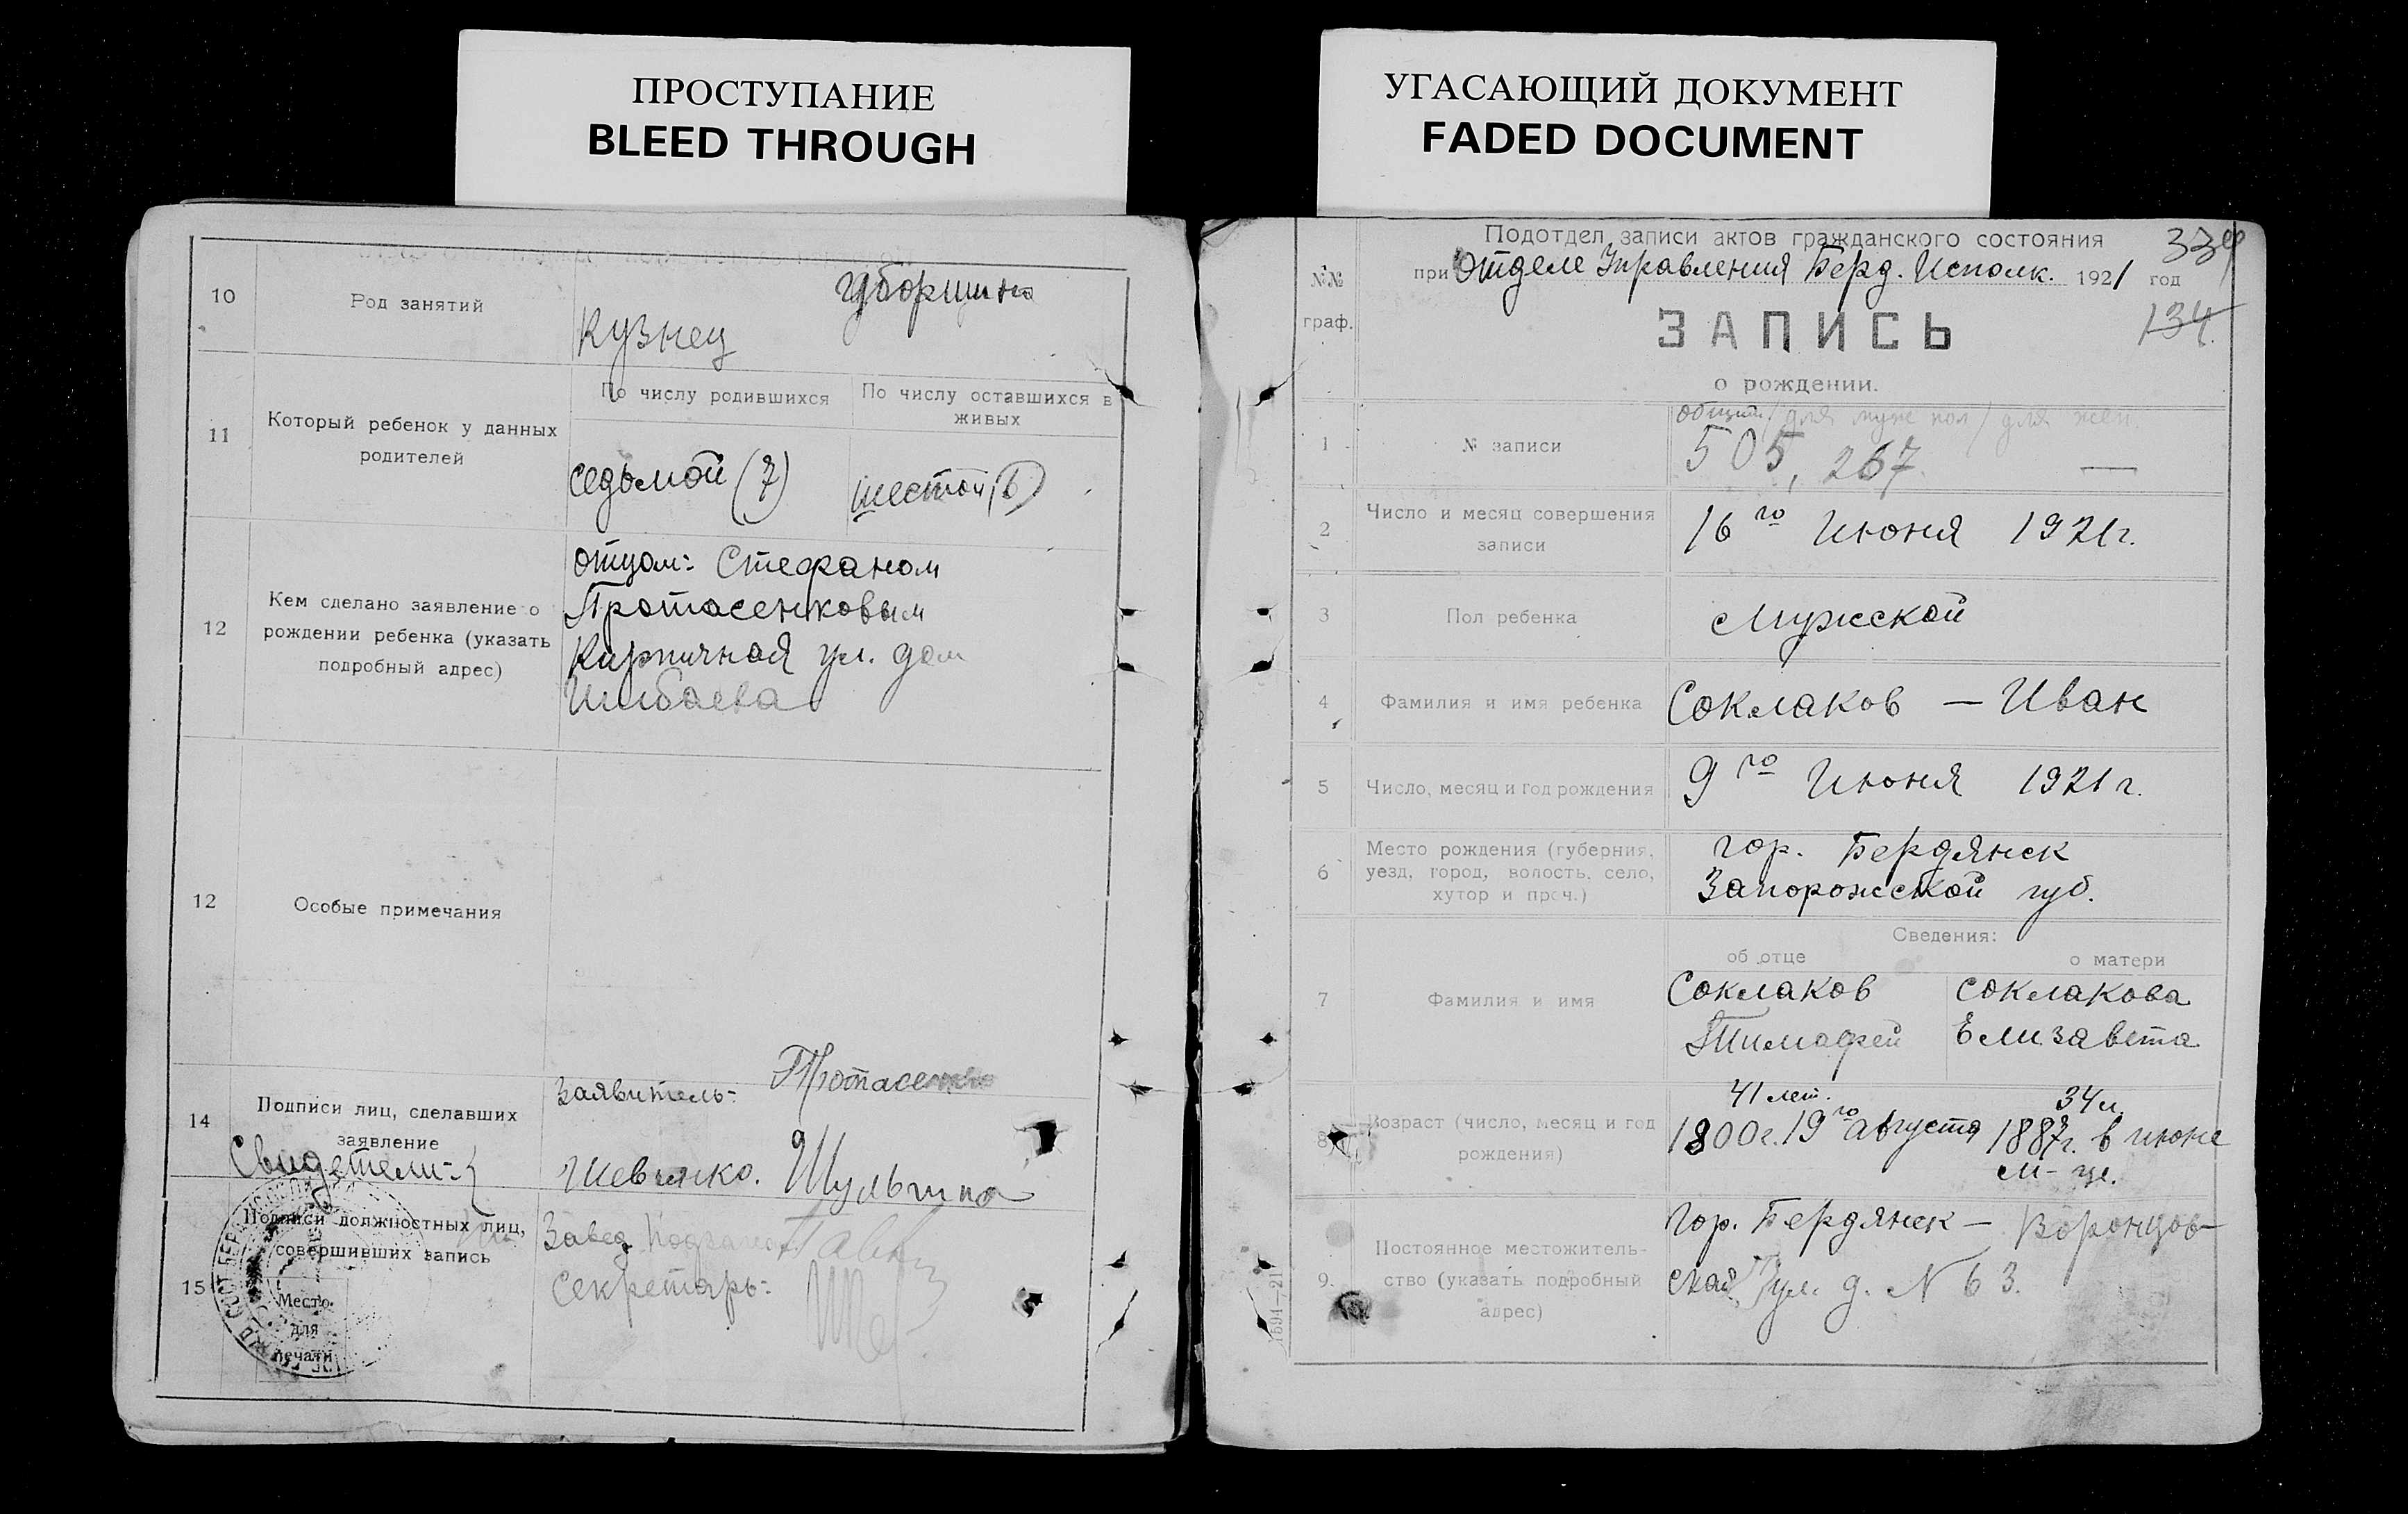 ПРОСТУПАНИЕ
BLEED THROUGH
10
Род занятий
Кузнец
уборщица
11
Который ребенок у данных
родителей
По числу родившихся
По числу оставшихся в
живых
седьмой (7)
шестой (6)
12
Кем сделано заявление о
рождении ребенка (указать
подробный адрес)
отцом: Стефаном
Протасенковым
Кирпичная ул. дом
12
Особые примечания
14
Подписи лиц, сделавших
заявление
Свидетели:
Заявитель:
Протасенко
Шевченко. Шульгина
15
Подписи должностных лиц,
совершивших запись
Место
для
печати
Завед.
Секретарь:
УГАСАЮЩИЙ ДОКУМЕНТ
FADED DOCUMENT
№№
граф.
Подотдел записи актов гражданского состояния
при Отделе Управления Берд. Исполк. 1921 год
134
ЗАПИСЬ
о рождении.
1
№ записи
общий / для муж пол / для жен.
505, 267. —
2
Число и месяц совершения
записи
16го Июня 1921г.
3
Пол ребенка
Мужской
4
Фамилия и имя ребенка
Соклаков — Иван
5
Число, месяц и год рождения
9го Июня 1921 г.
6
Место рождения (губерния,
уезд, город, волость, село,
хутор и проч.)
гор. Бердянск
Запорожской губ.
Сведения:
об отце
о матери
7
Фамилия и имя
Соклаков
Тимофей
Соклакова
Елизавета
8
Возраст (число, месяц и год
рождения)
41 лет.
34 л.
19го августа
1887г. в июне
м-це.
9.
Постоянное местожитель-
ство (указать подробный
адрес)
гор. Бердянск — Воронцов-
ская ул. д. N 63.
1694—21